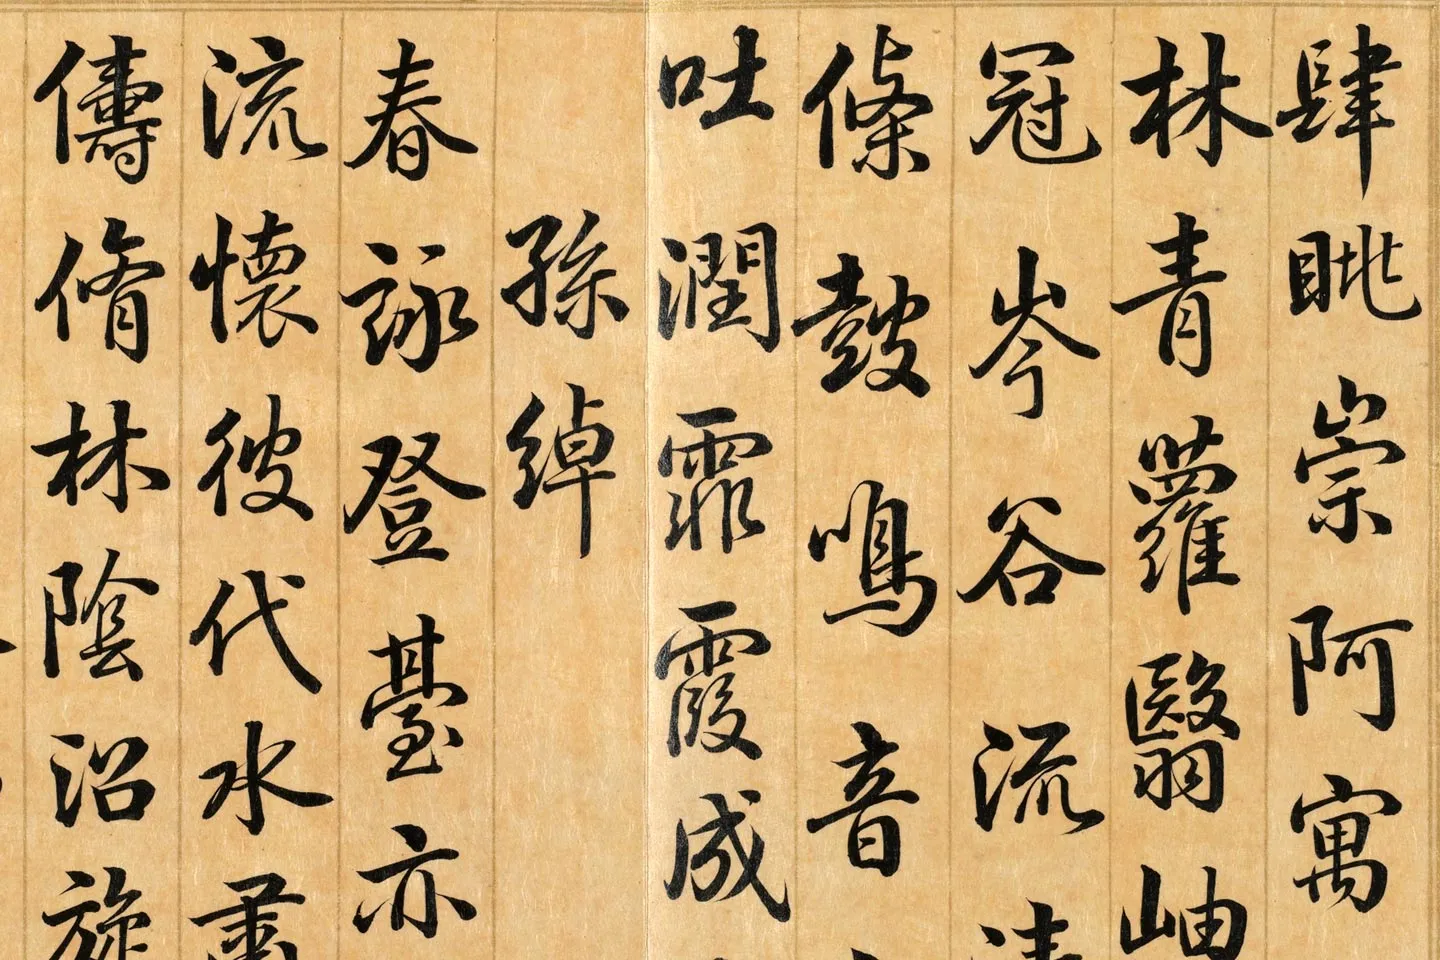 肆眺崇阿寓
林青蘿翳岫
冠岑谷流
條皷鳴音
吐潤霏霞成
孫綽
春詠登臺亦
流懷彼代水肅
儔脩林陰沼旋